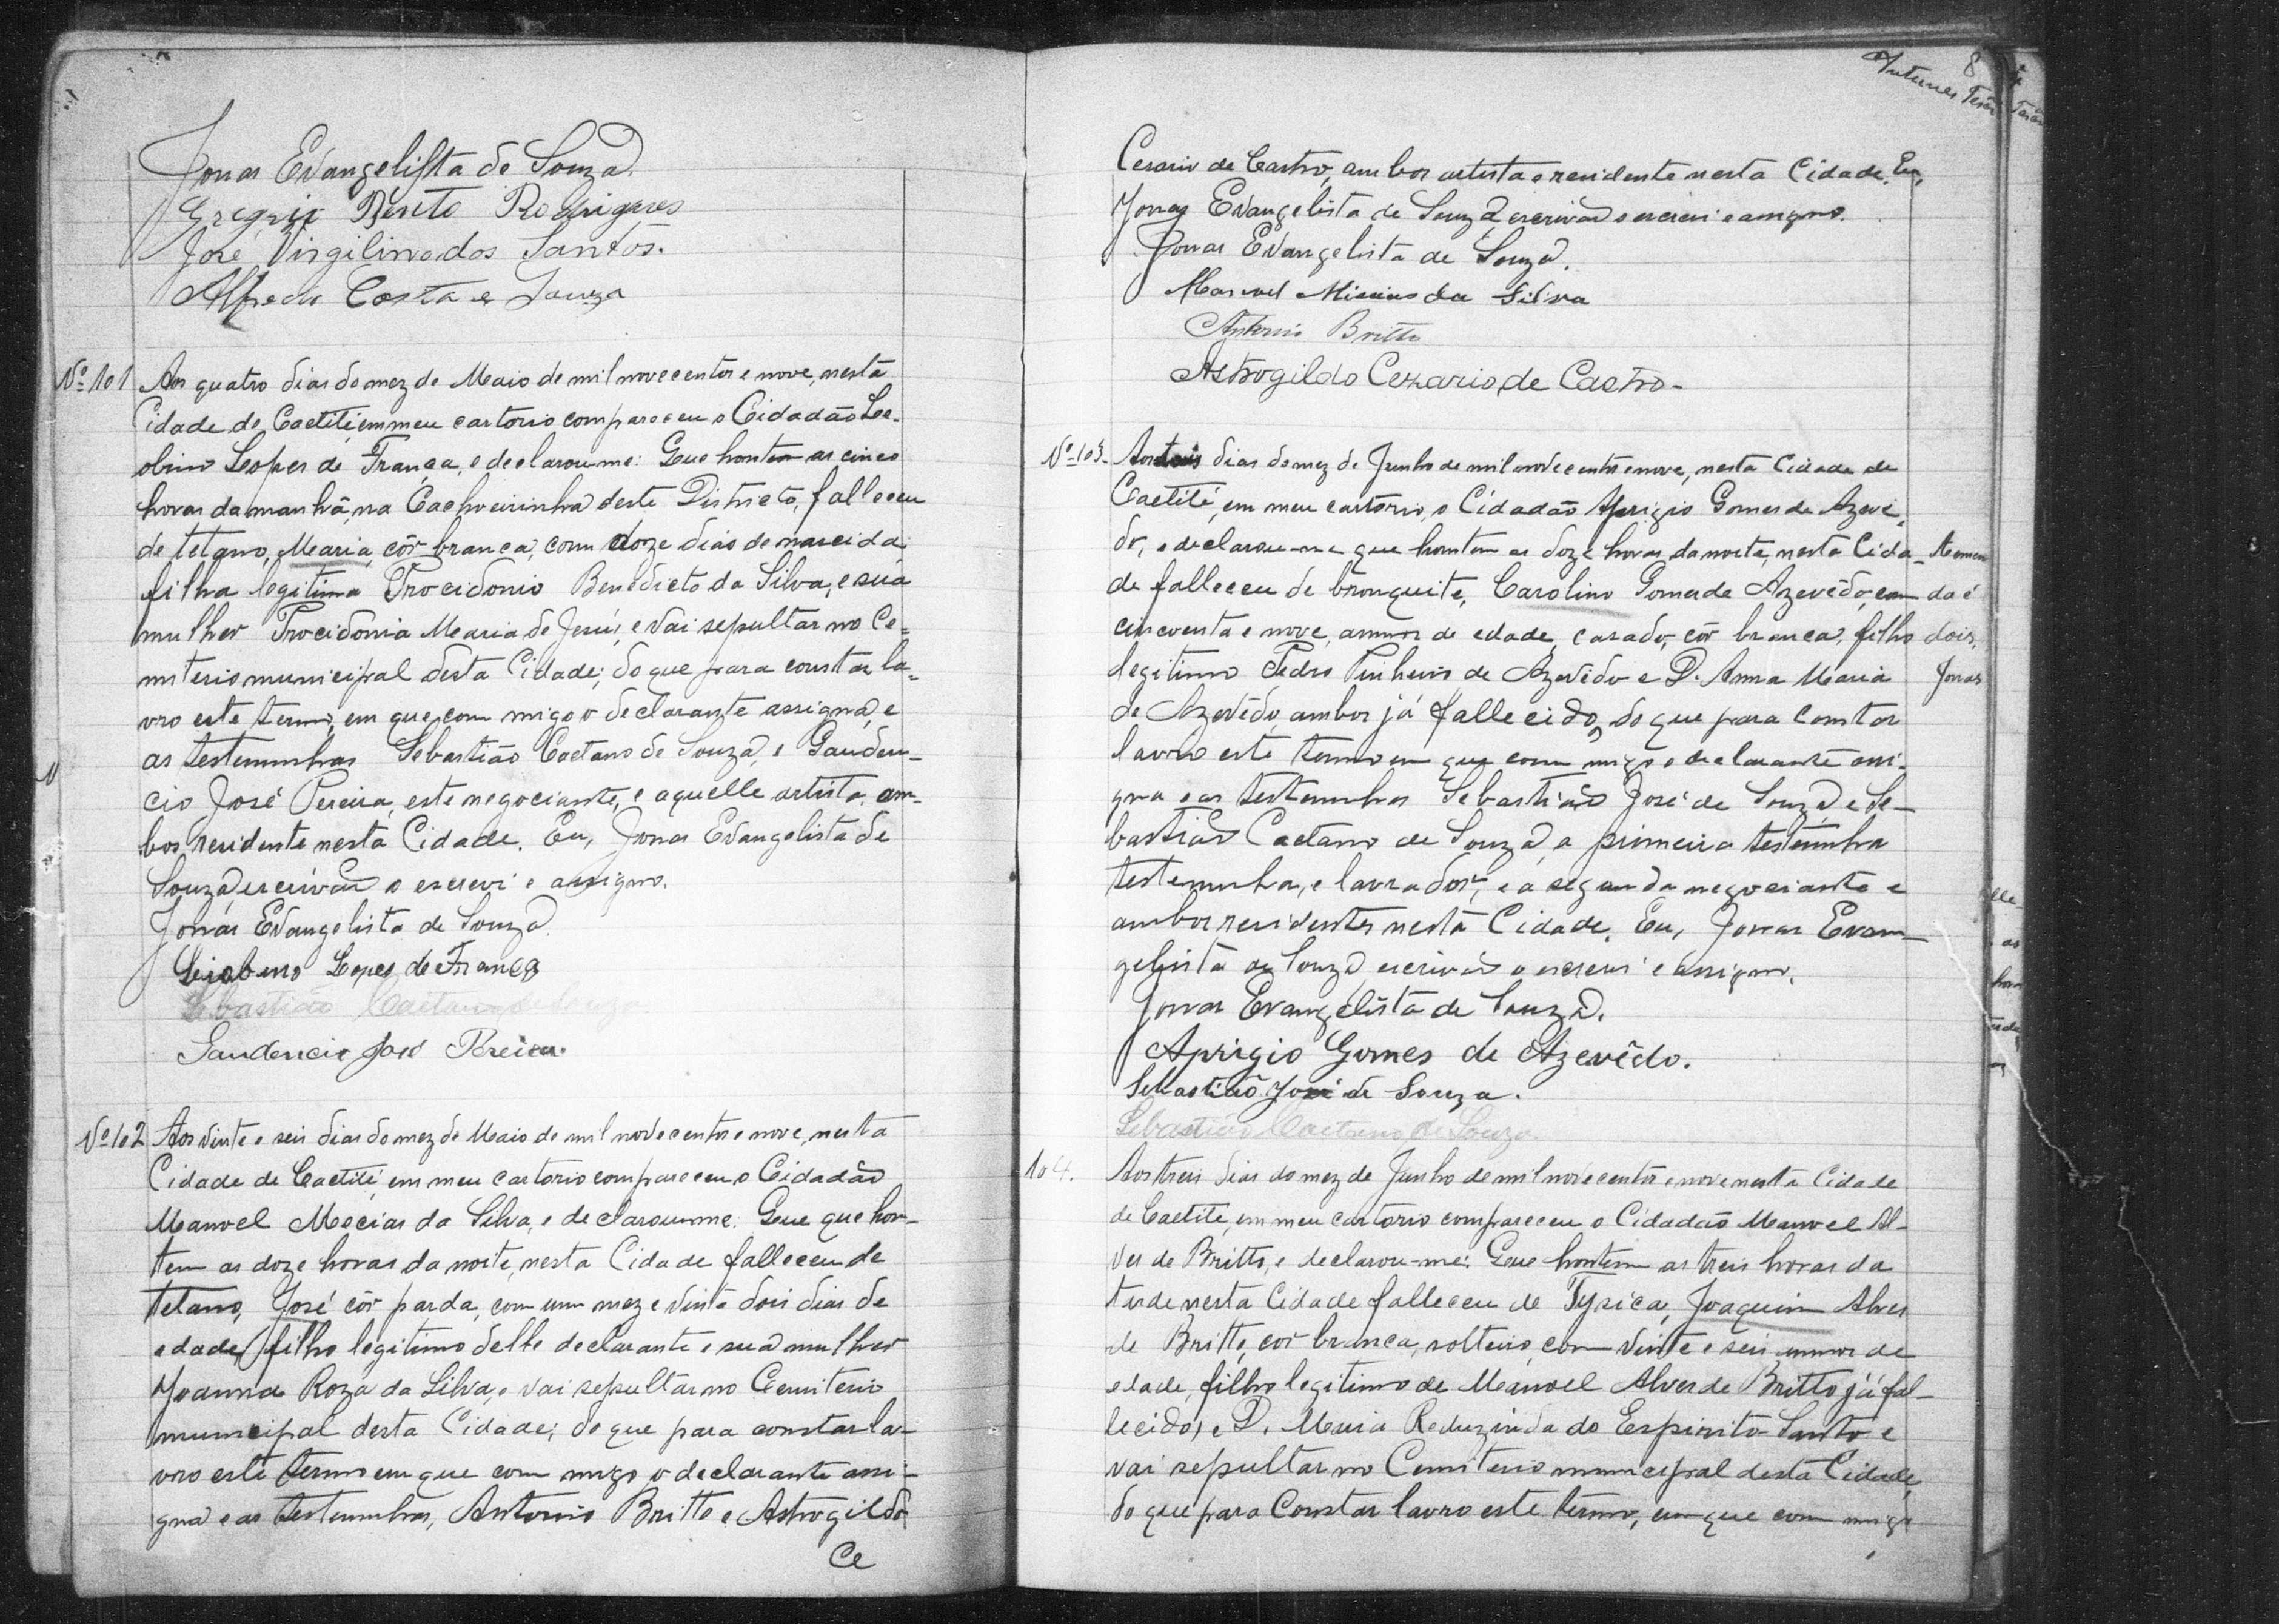 Jonas Evangelista de Souza
Gregorio Benito Rodrigues
José Virgilino dos Santos.
Alfredo Costa e Souza
Nº 101 Aos quatro dias do mez de Maio de mil novecentos e nove, nesta
Cidade de Caetité, em meu cartorio compareceu o Cidadão Le-
obino Lopes de França, e declarou me: Que hontem as cinco
horas da manhã, na Cachoeirinha deste Districto, falleceu
de tetano, Maria, côr branca, com doze dias de nascida,
filha legitima Procidonio Benedicto da Silva, e sua
mulher Procidonia Maria de Jesús, e vai sepultar no Ce-
miterio municipal desta Cidade; do que para constar la-
vro este termo, em que com migo o declarante assigna, e
as testemunhas Sebastião Caetano de Souza, e Gauden-
cio José Pereira, este negociante, e aquelle artista, am-
bos residente nesta Cidade. Eu, Jonas Evangelista de
Souza, escrivão o escrevi e assigno.
Jonas Evangelista de Souza
Leiobino Lopes de França
Sebastião Caetano de Souza
Gaudencio José Pereira.
Nº 102 Aos vinte e seis dias do mez de Maio de mil novecentos e nove, nesta
Cidade de Caetité, em meu cartorio compareceu o Cidadão
Manoel Mecias da Silva, e declarou me: Que que hon-
tem as doze horas da noite, nesta Cidade falleceu de
tetano, José côr parda, com um mez e vinte dois dias de
edade, filho legitimo delle declarante e sua mulher
Joanna Roza da Silva, e vai sepultar no Cemiterio
municipal desta Cidade; do que para constar la-
vro este termo em que com migo o declarante assi-
gna e as testemunhas, Antonio Britto e Astrogildo
Ce
8
Antunes
Cesario de Castro, ambos artista e residente nesta Cidade. Eu,
Jonas Evangelista de Souza, escrivão o escrevi e assigno.
Jonas Evangelista de Souza.
Manoel Missias da Silva
Antonio Britto
Astrogildo Cezario de Castro-
Nº 103- Aos dois dias do mez de Junho de mil novecentos e nove, nesta Cidade de
Caetité, em meu cartorio, o Cidadão Aprigio Gomes de Azeve-
do, e declarou-me que hontem as doze horas da noite, nesta Cida-
de falleceu de bronquite, Carolino Gomes de Azevêdo, com
cincoenta e nove annos de edade, casado, côr branca, filho
legitimo Pedro Pinheiro de Azevêdo e D. Anna Maria
de Azevêdo, ambos já fallecido, do que para constar
lavro este termo em que com migo o declarante assi-
gna e as testemunhas Sebastião José de Souza, e Se-
bastião Caetano de Souza, a primeira testemunha
testemunha, e lavrador, e a segunda negociante e
ambos residentes nesta Cidade. Eu, Jonas Evan-
gelista de Souza, escrivão o escrevi e assigno.
A emen
da é
dois.
Jonas
Jonas Evangelista de Souza.
Aprigio Gomes de Azevêdo.
Sebastião José de Souza.
Sebastião Caetano de Souza
104. Aos treis dias do mez de Junho de mil novecentos e nove nesta Cidade
de Caetité, em meu cartorio compareceu o Cidadão Manoel Al-
ves de Britto, e declarou-me: Que hontem as treis horas da
tarde nesta Cidade falleceu de Tysica, Joaquim Alves
de Britto, côr branca, solteiro, com vinte e seis annos de
edade, filho legitimo de Manoel Alves de Britto já fal-
lecido, e D. Maria Reduzinda do Espirito Santo e
vai sepultar no Cemiterio municipal desta Cidade,
do que para Constar lavro este termo, em que com migo